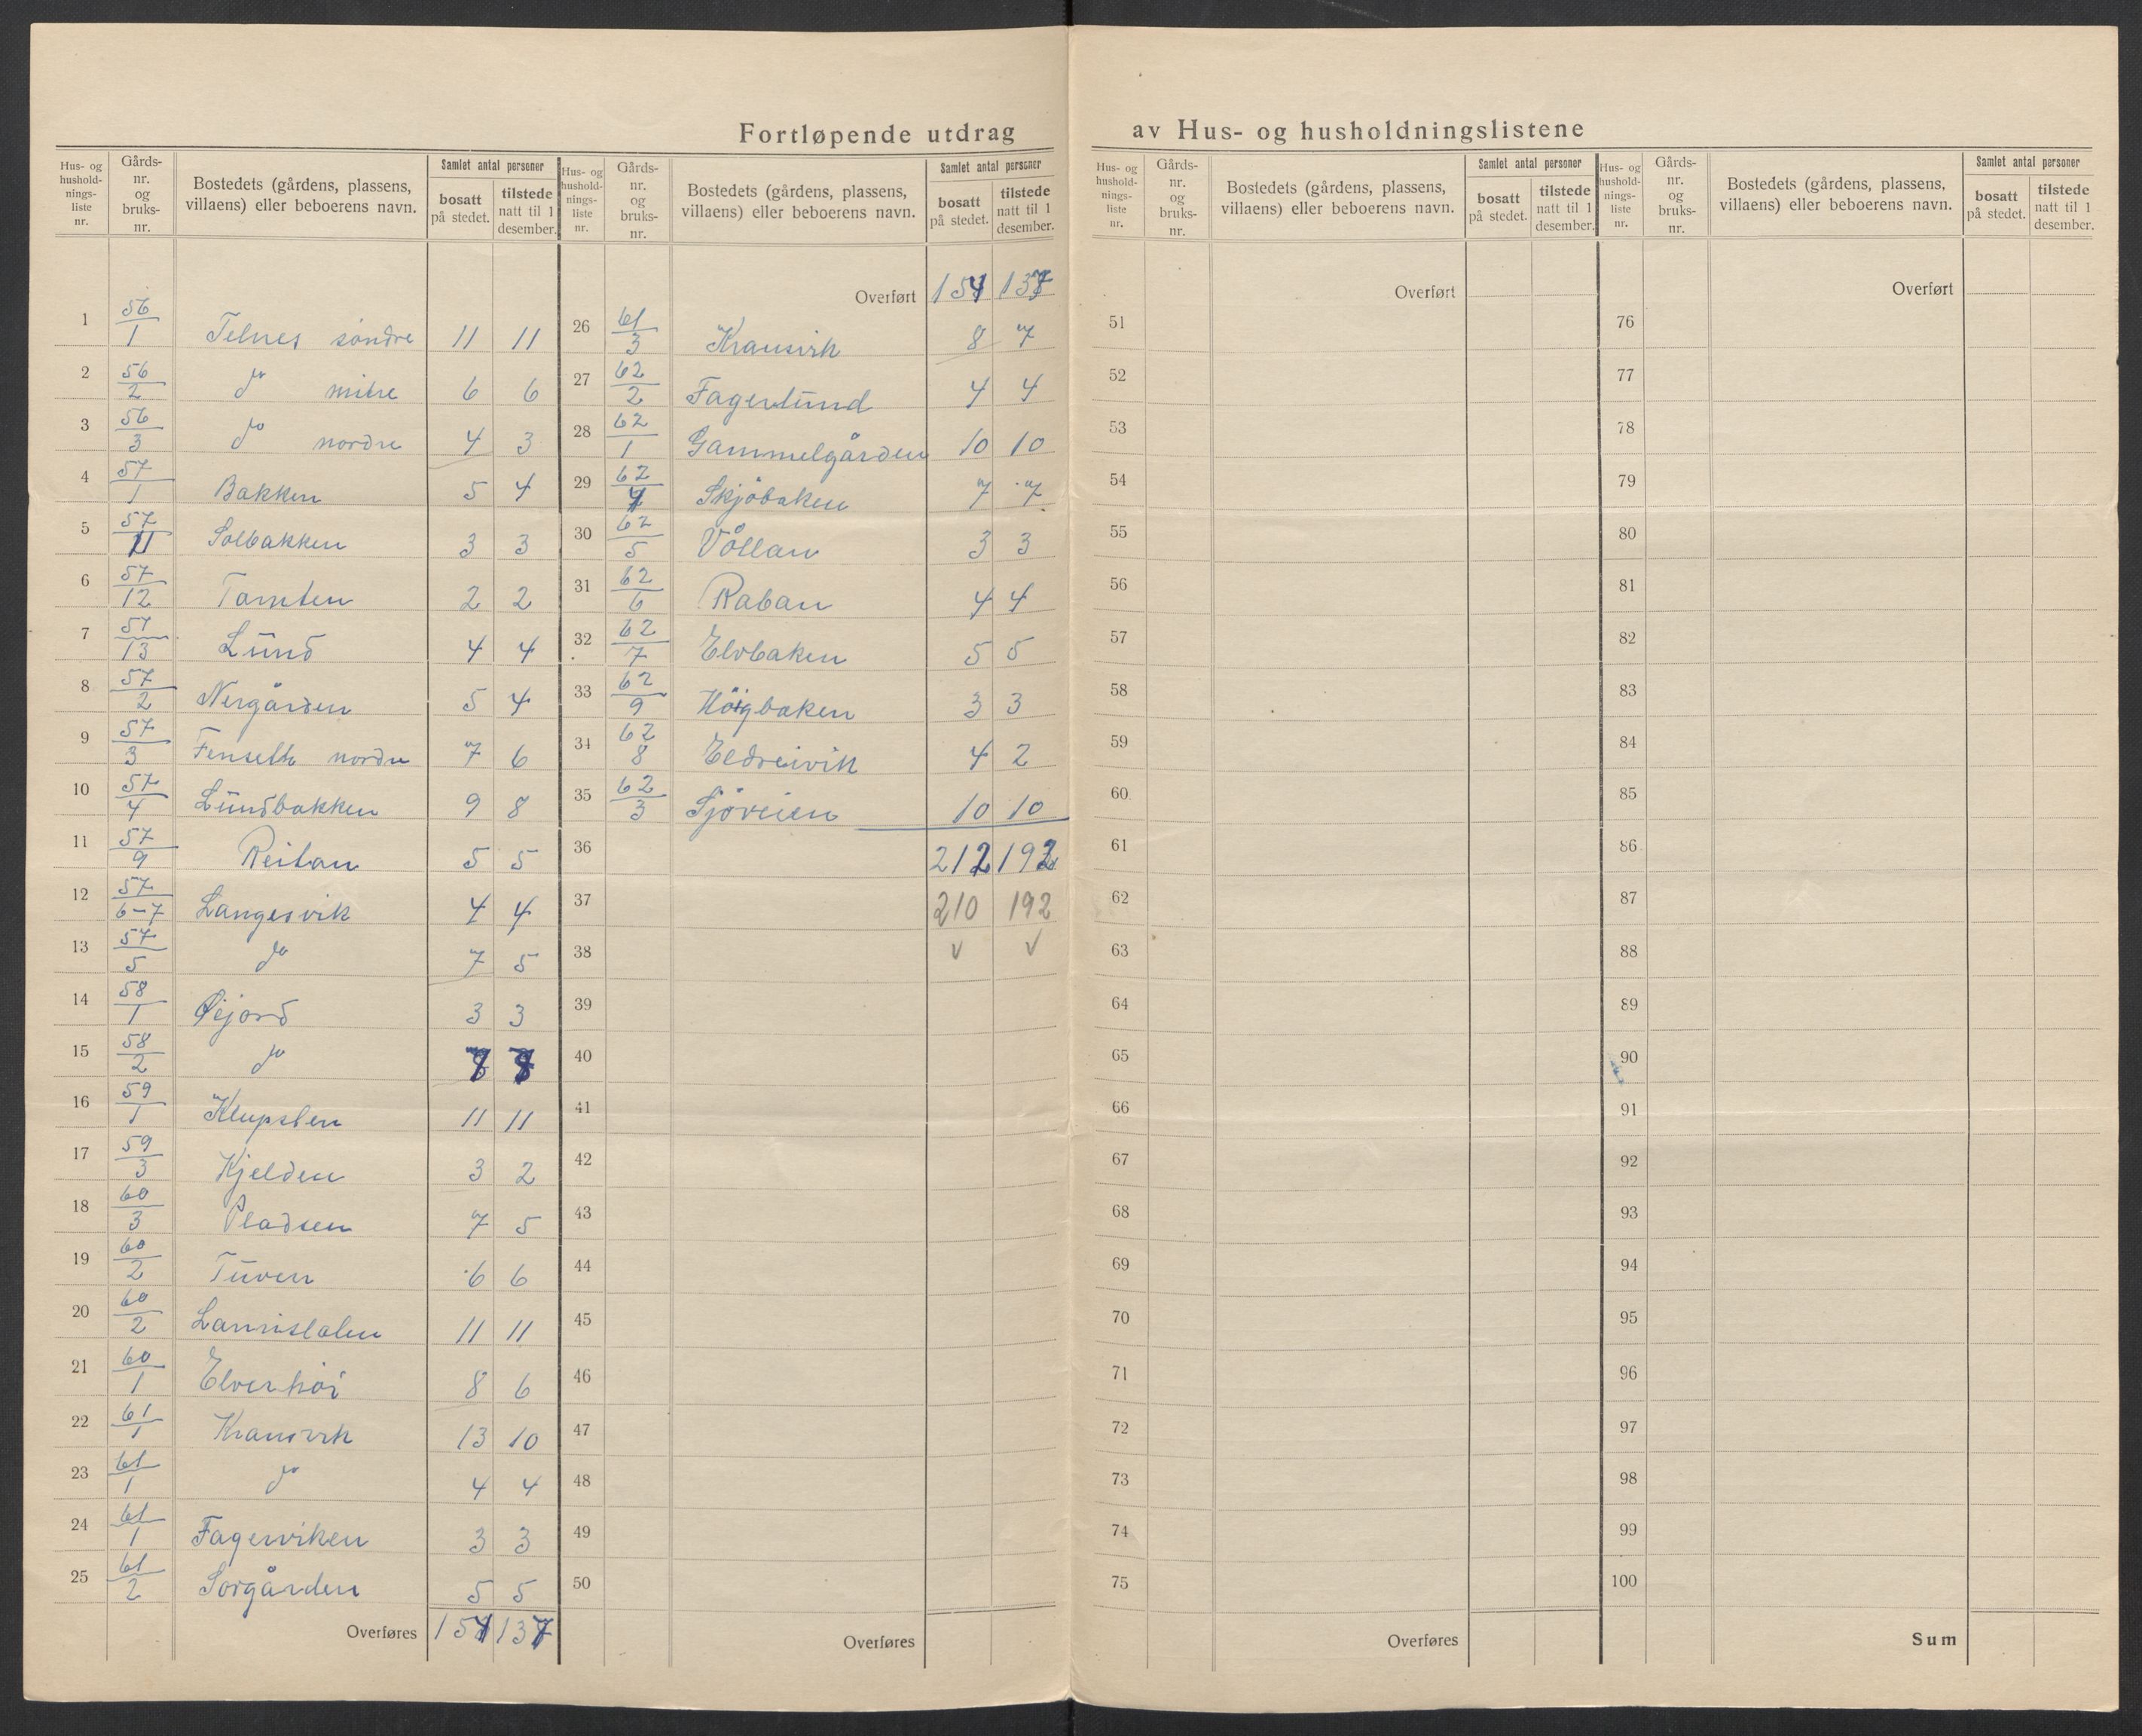 Fortløpende utdrag av Hus- og husholdningslistene
Hus- og hushold- nings- liste nr. | Gårds- nr. og bruks- nr. | Bostedets (gårdens, plassens, villaens) eller beboerens navn. | Samlet antal personer | bosatt på stedet. | tilstede natt til 1 desember.
1 56/1 Telnes søndre 11 11
2 56/2 do mitre 6 6
3 56/3 do nordre 4 3
4 57/1 Bakken 5 4
5 57/11 Solbakken 3 3
6 57/12 Tomten 2 2
7 57/13 Lund 4 4
8 57/2 Nergården 5 4
9 57/3 nordre 7 6
10 57/4 Lundbakken 9 8
11 57/9 Reitan 5 5
12 57/6-7 Langesvik 4 4
13 57/5 do 7 5
14 58/1 Øijord 3 3
15 58/2 do
16 59/1 11 11
17 59/3 Kjelden 3 2
18 60/3 Pladsen 7 5
19 60/2 Tuven 6 6
20 60/2 11 11
21 60/1 Elverhøi 8 6
22 61/1 Kransvik 13 10
23 61/1 do 4 4
24 61/1 Fagerviken 3 3
25 61/2 Sorgården 5 5
Overføres 154 137
Hus- og hushold- nings- liste nr. | Gårds- nr. og bruks- nr. | Bostedets (gårdens, plassens, villaens) eller beboerens navn. | Samlet antal personer | bosatt på stedet. | tilstede natt til 1 desember.
Overført 154 137
26 61/3 Kransvik 8 7
27 62/2 Fagerlund 4 4
28 62/1 Gammelgården 10 10
29 62/4 Skjåbaken 7 7
30 62/5 Vollan 3 3
31 62/6 Raban 4 4
32 62/7 Elvbaken 5 5
33 62/9 Høigbaken 3 3
34 62/8 Eldreivik 4 2
35 62/3 Sjøveien 10 10
36 212 192
37 210 192
38 v v
39
40
41
42
43
44
45
46
47
48
49
50
Overføres
Hus- og hushold- nings- liste nr. | Gårds- nr. og bruks- nr. | Bostedets (gårdens, plassens, villaens) eller beboerens navn. | Samlet antal personer | bosatt på stedet. | tilstede natt til 1 desember.
Overført
51
52
53
54
55
56
57
58
59
60
61
62
63
64
65
66
67
68
69
70
71
72
73
74
75
Overføres
Hus- og hushold- nings- liste nr. | Gårds- nr. og bruks- nr. | Bostedets (gårdens, plassens, villaens) eller beboerens navn. | Samlet antal personer | bosatt på stedet. | tilstede natt til 1 desember.
Overført
76
77
78
79
80
81
82
83
84
85
86
87
88
89
90
91
92
93
94
95
96
97
98
99
100
Sum